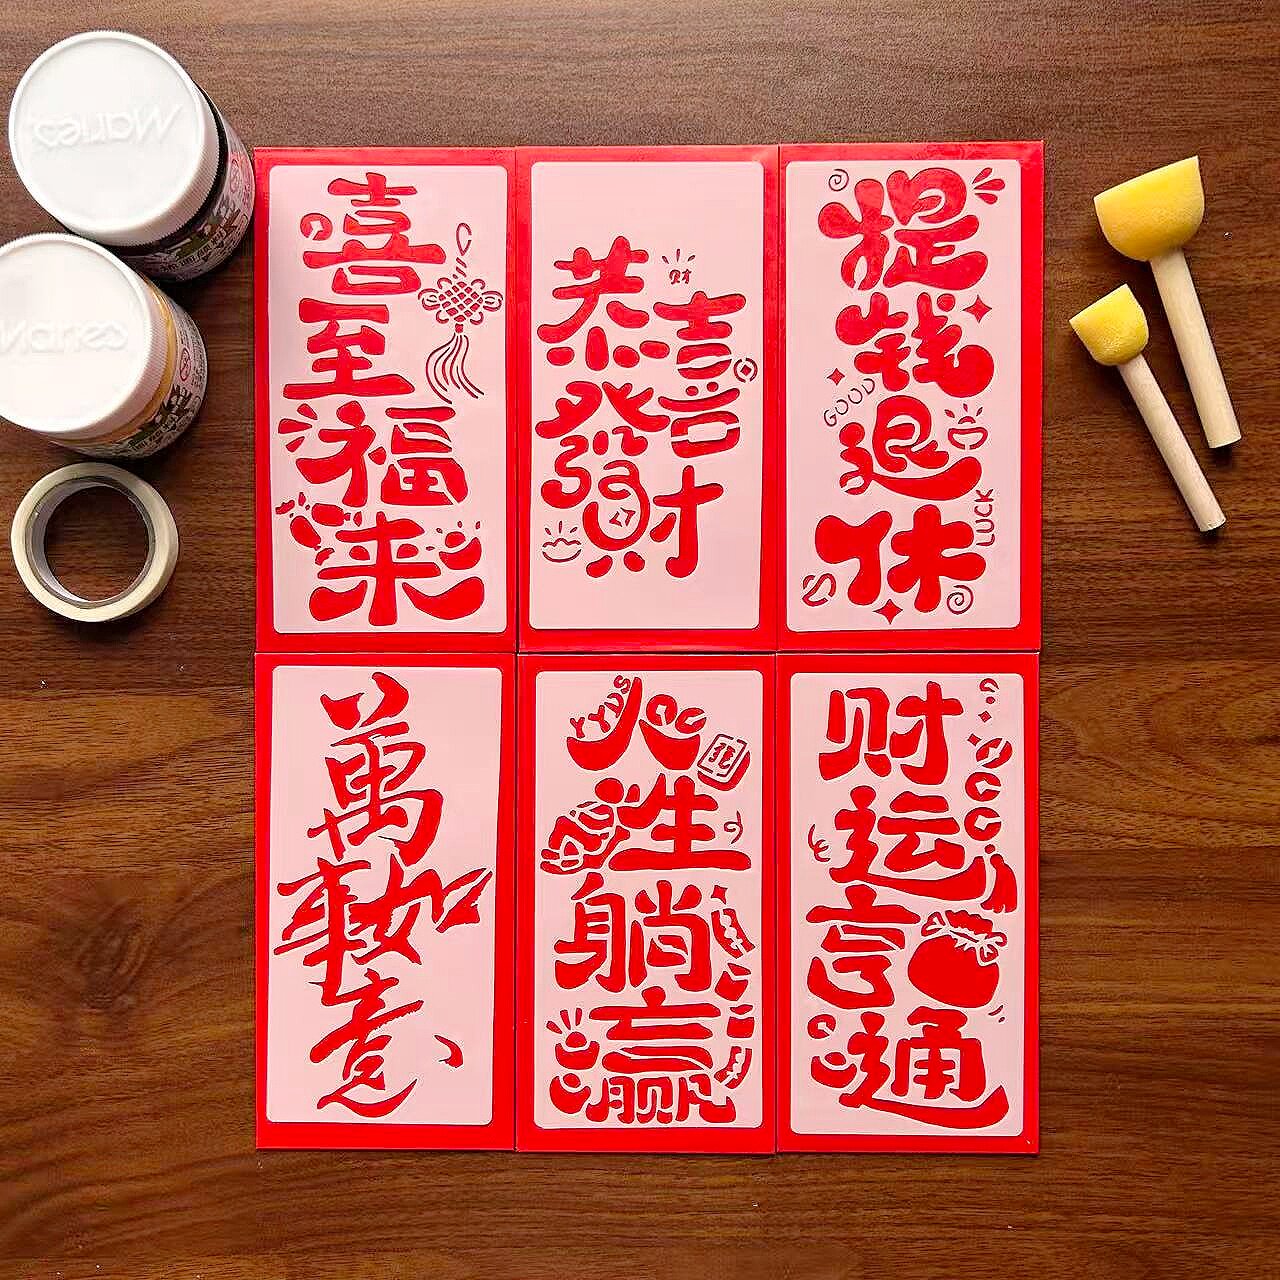 Maries
Maries
喜至福来
恭喜發財
财
提钱退休
GOOD
LUCK
萬事如意
人生躺赢
YYDS
财运亨通